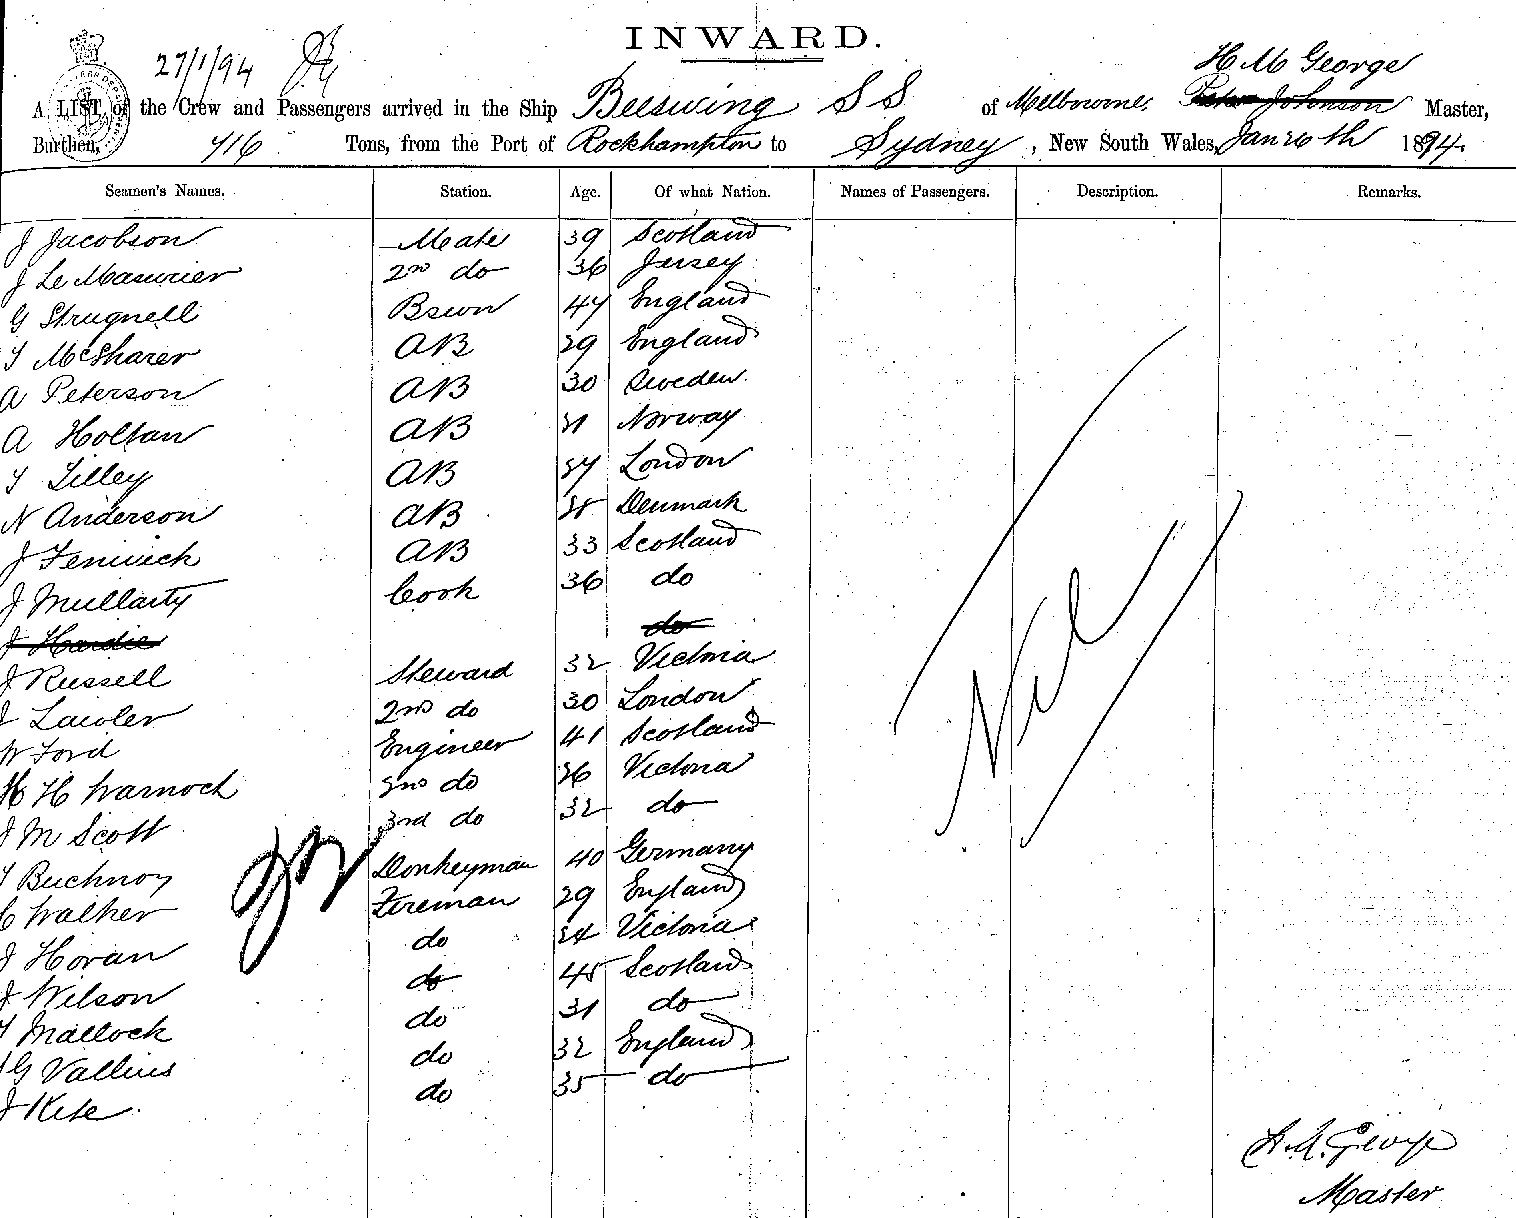 INWARD.
27/1/94
H M George
A LIST of the Crew and Passengers arrived in the Ship Beeswing S S of Melbourne, Peter Johnson Master,
Burthen, 416 Tons, from the Port of Rockhampton to Sydney, New South Wales, Jan 26th 1894.
Seamen's Names. Station. Age. Of what Nation. Names of Passengers. Description. Remarks.
J Jacobson Mate 39 Scotland
J Le Masurier 2nd do 36 Jersey
G Strugnell Bswn 47 England
T McSharer AB 29 England
A Peterson AB 30 Sweden
A Holtan AB 31 Norway
T Lilley AB 37 London
N Anderson AB Denmark
J Fenwick AB 33 Scotland
J Mullarty Cook 36 do
J Hardie do
J Russell Steward 32 Victoria
J Lawler 2nd do 30 London
W Ford Engineer 41 Scotland
H Warnock 2nd do 36 Victoria
J M Scott 3rd do 32 do
T Buchnoy Donkeyman 40 Germany
C Walker Fireman 29 England
J Horan do 34 Victoria
J Wilson do 45 Scotland
T Mallock do 31 do
G Vallins do 32 England
J Kite do 35 do
Nil
H. M. George
Master